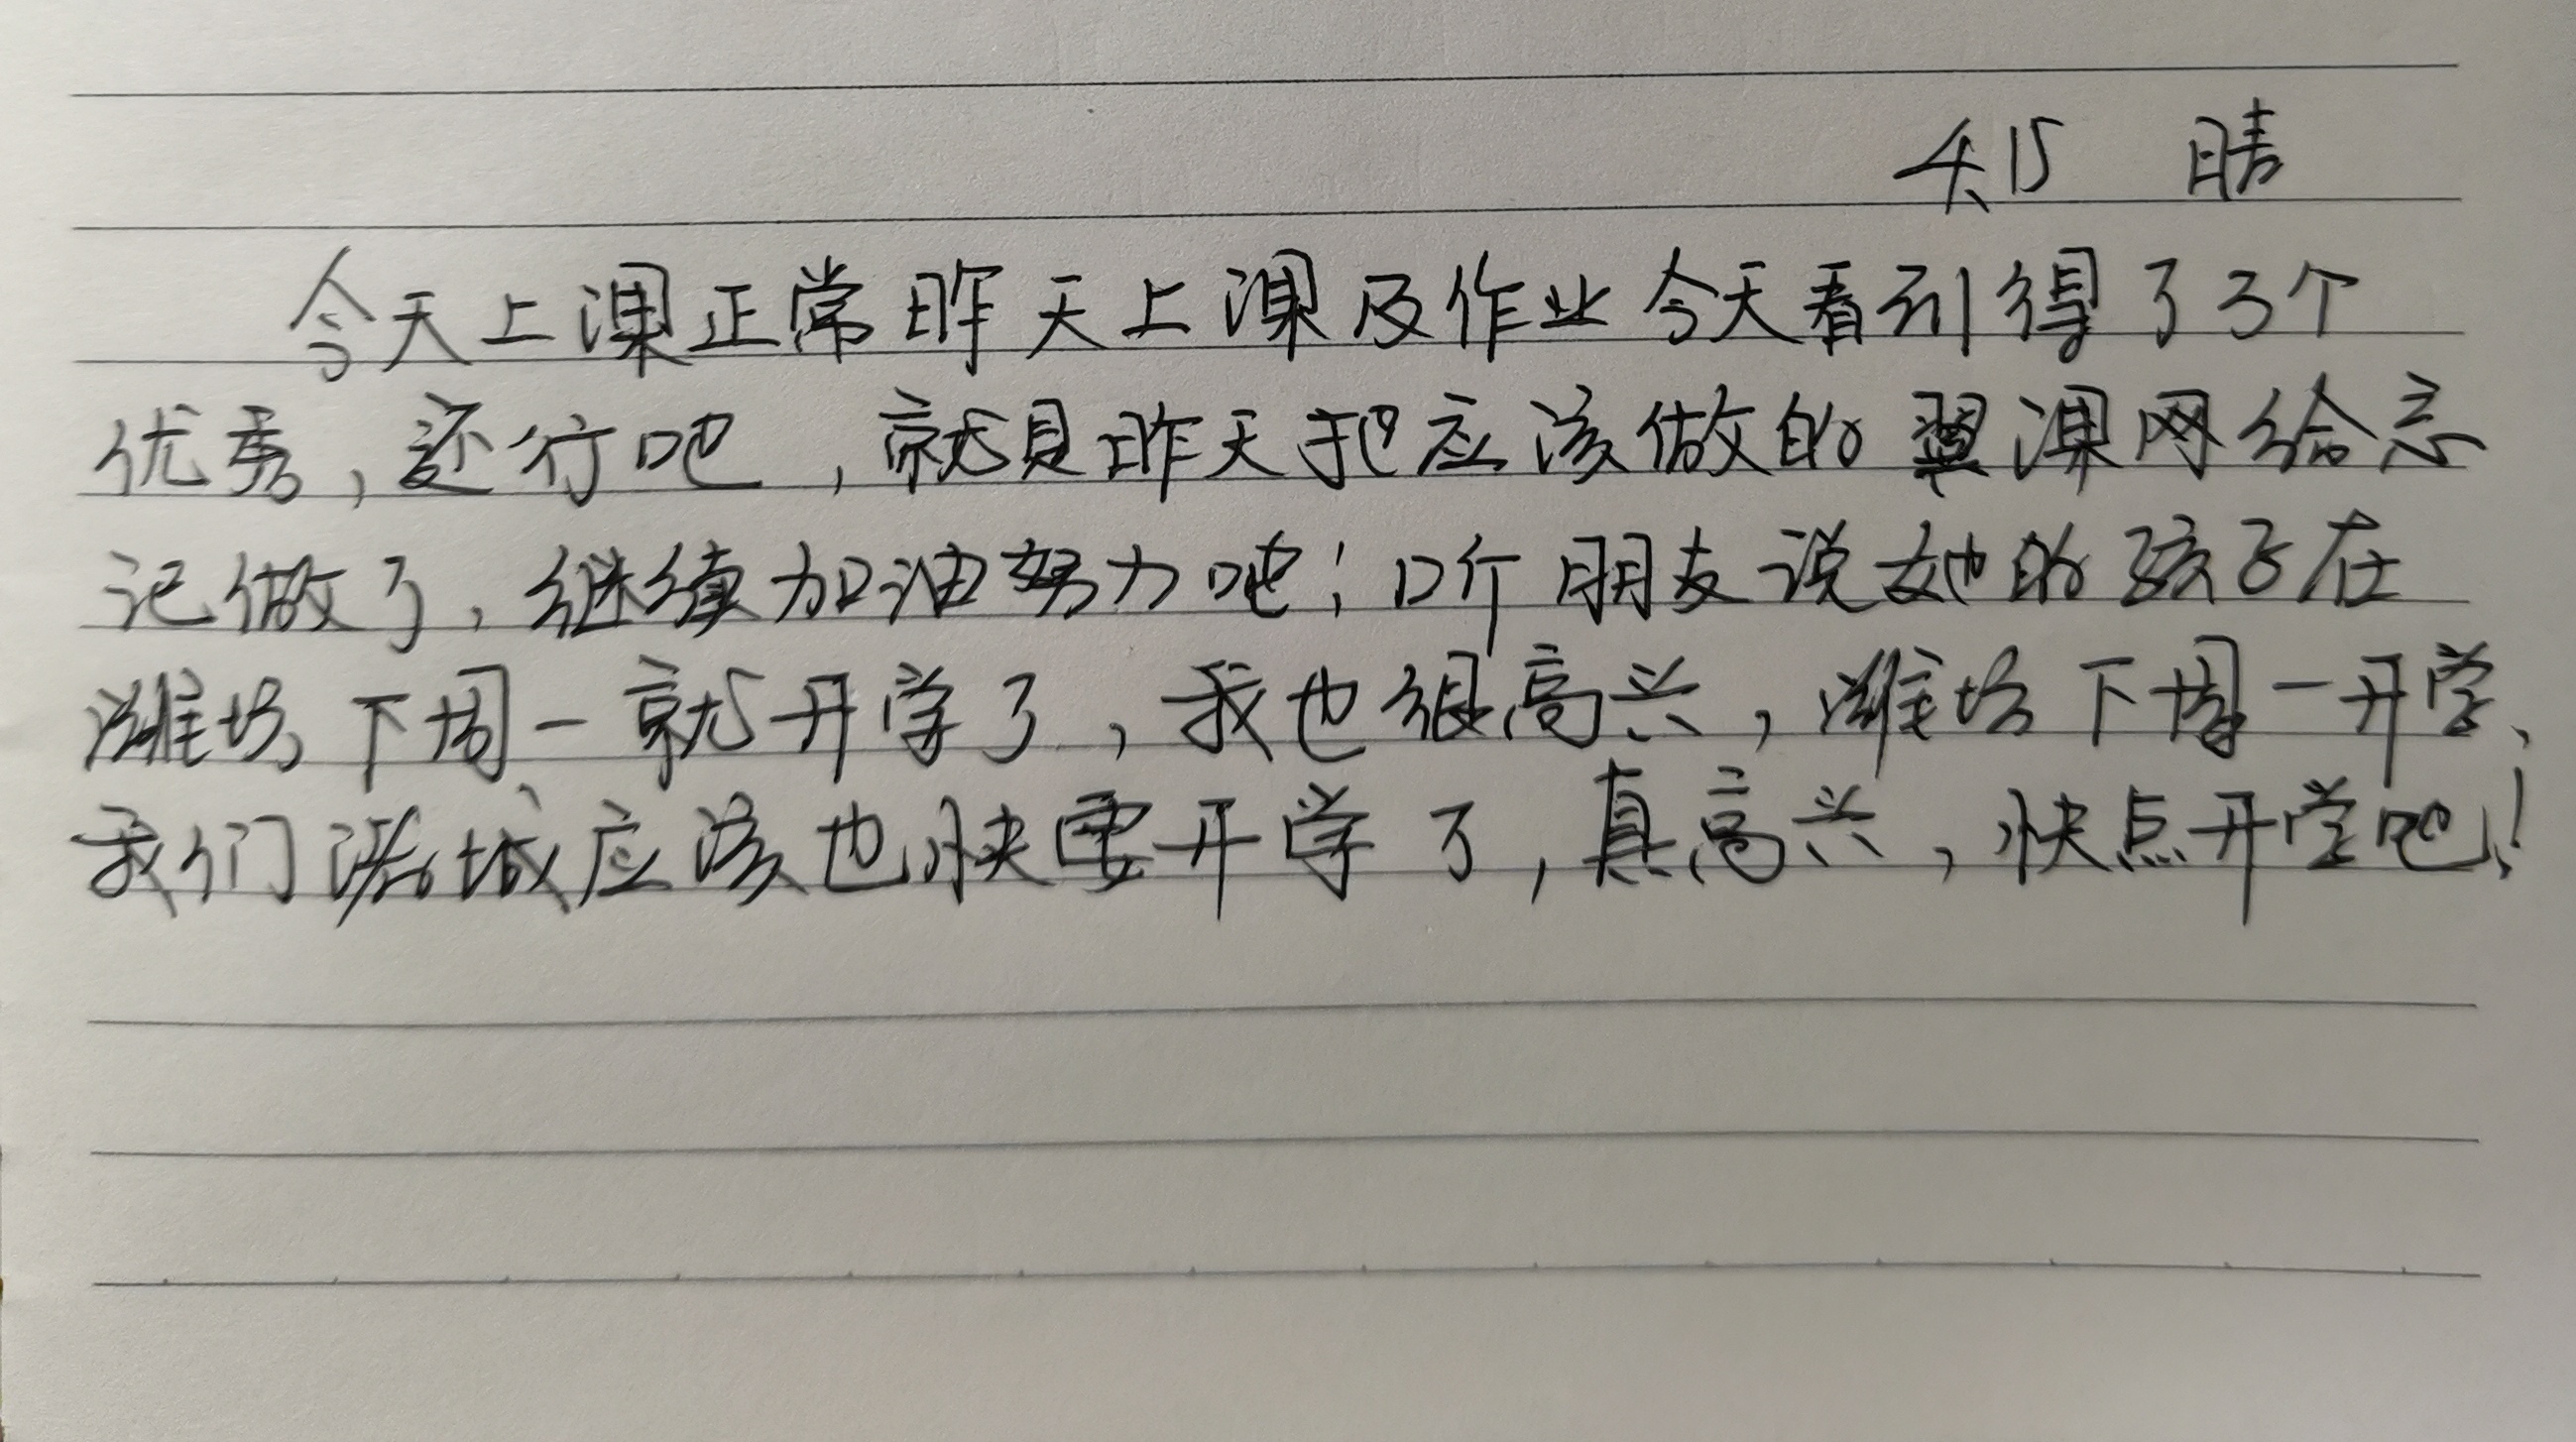 4.15 晴
今天上课正常昨天上课及作业今天看到得了3个
优秀,还行吧,就是昨天把应该做的翼课网给忘
记做了,继续加油努力吧!听朋友说她的孩子在
潍坊下周一就开学了,我也很高兴,潍坊下周一开学、
我们诸城应该也快要开学了,真高兴,快点开学吧!